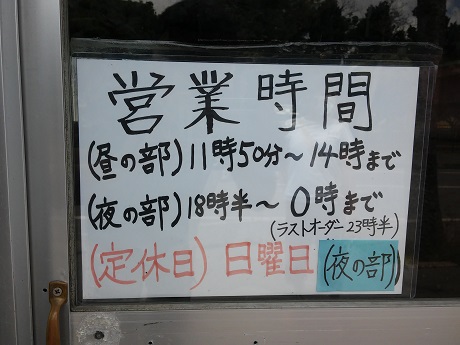 営業時間
(昼の部)11時50分～14時まで
(夜の部)18時半～0時まで
(ラストオーダー23時半)
(定休日)日曜日(夜の部)